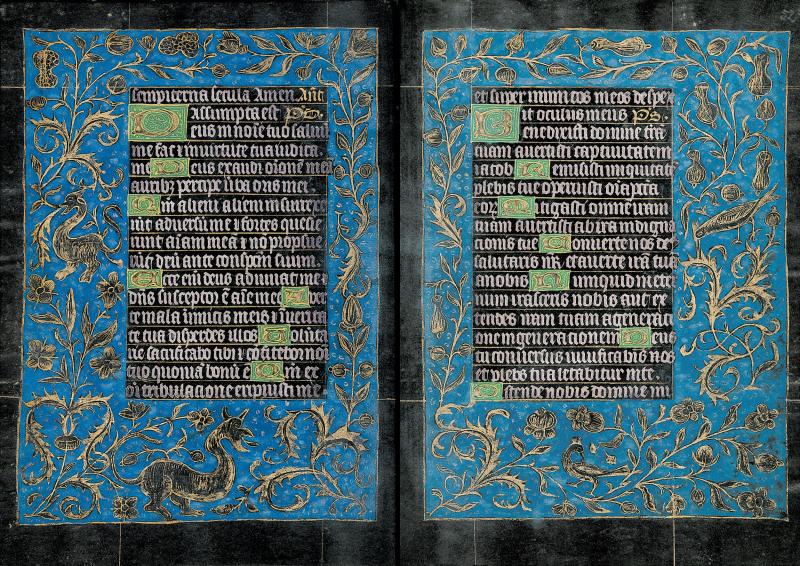 sempiterna secula Amen Añt
Assumpta est ps
Deus in noīe tuo saluū
me fac et in uirtute tua iudica
me Deus exaudi orōnem meā
auribꝫ percipe ūba oris mei
Qm̄ alieni insurrexe
rūt aduersū me et fortes quesie
runt aīam meā et nō propsue
rūt deū ante conspm̄ suum
Ecce enī deus adiuuat me et
dn̄s susceptor ē aīe mee Auer
te mala inimicis meis et in uerita
te tua disperdes illos Volunta
rie sacrificabo tibi et cōfitebor noī
tuo quoniā bonū ē Qm̄ ex
oī tribulacione eripuisti me
et super inimicos meos despex
it oculus meus ps
Benedixisti domine terrā
tuam auertisti captiuitatem
iacob Remisisti iniquitatē
plebis tue operuisti oīa pctā
eoꝝ Mitigasti omnē iram
tuam auertisti ab ira indigna
cionis tue Conuerte nos deꝰ
salutaris nr̄ et auerte irā tuā
a nobis Numquid in eter
num irasceris nobis aut ex
tendes iram tuam a generati
one in generationem Deus
tu conuersus uiuificabis nos
et plebs tua letabitur in te
Ostende nobis domine mi